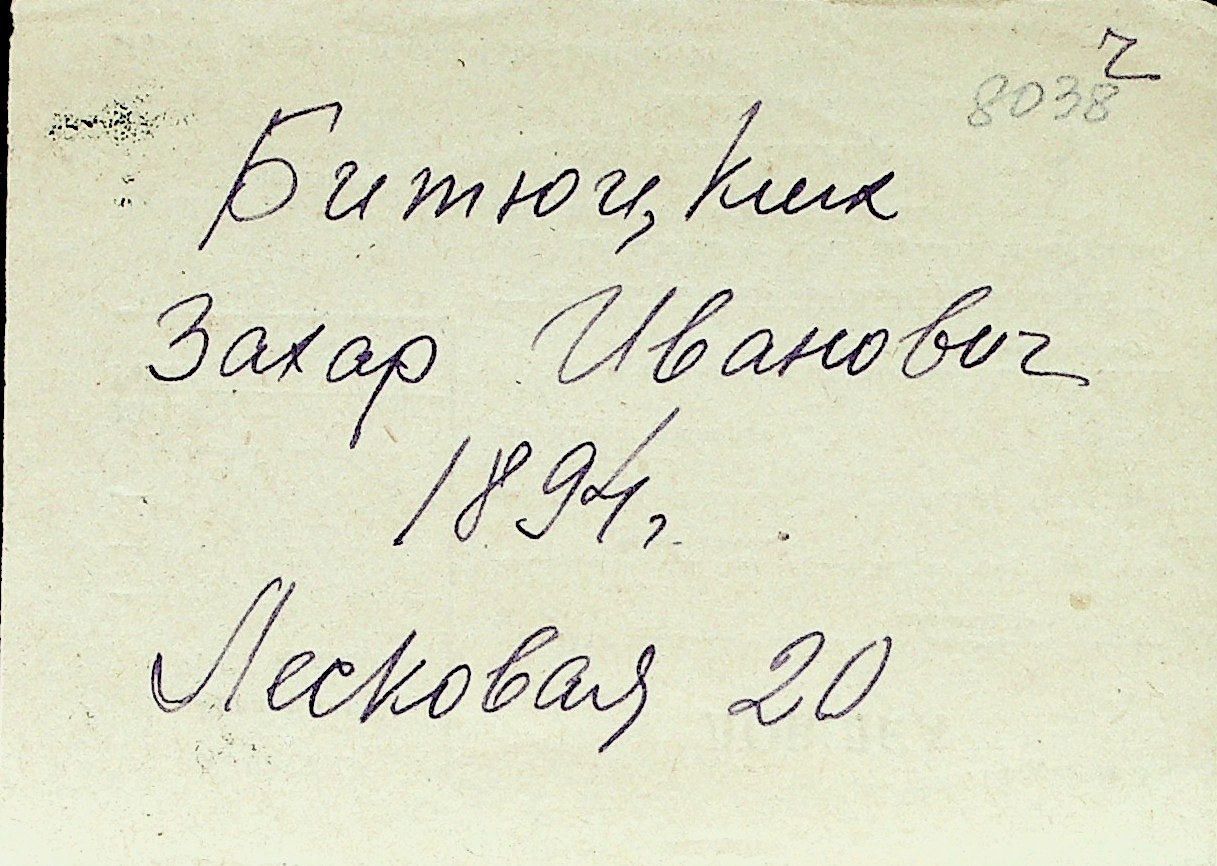 ч
8038
Битюцких
Захар Иванович
1894,
Лесковая 20